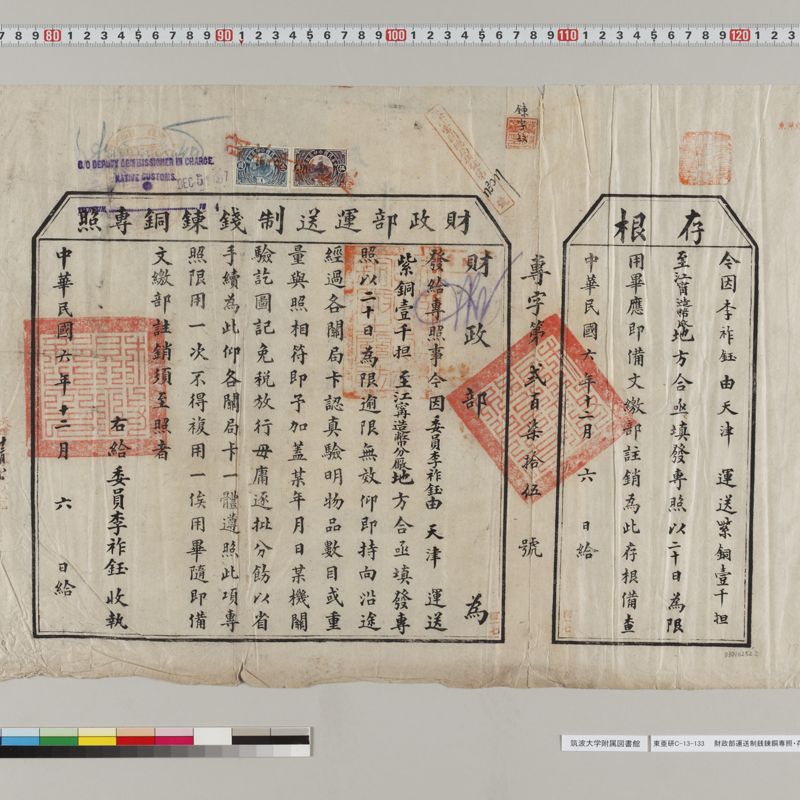 存根
令因李祚鈺由天津　運送紫銅壹千担
至江甯造幣分廠地方合亟填發專照以二十日為限
用畢應即備文繳部註銷為此存根備查
中華民國六年十二月　六　日給
專字第貳百柒拾伍號
財政部運送制錢鍊銅專照
財政部　為
發給專照事令因委員李祚鈺由天津　運送
紫銅壹千担至江甯造幣分廠地方合亟填發專
照以二十日為限逾限無效仰即持向沿途
經過各關局卡認真驗明物品數目或重
量與照相符即予加蓋某年月日某機關
驗訖圖記免稅放行毋庸逐批分飭以省
手續為此仰各關局卡一體遵照此項專
照限用一次不得複用一俟用畢隨即備
文繳部註銷須至照者
右給委員李祚鈺收執
中華民國六年十二月　六　日給
C/O DEPUTY COMMISSIONER IN CHARGE.
NATIVE CUSTOMS.
DEC 5
7 8 9 80 1 2 3 4 5 6 7 8 9 90 1 2 3 4 5 6 7 8 9 100 1 2 3 4 5 6 7 8 9 110 1 2 3 4 5 6 7 8 9 120 1 2 3
筑波大学附属図書館
東亜研C-13-133　財政部運送制銭鍊銅専照・存